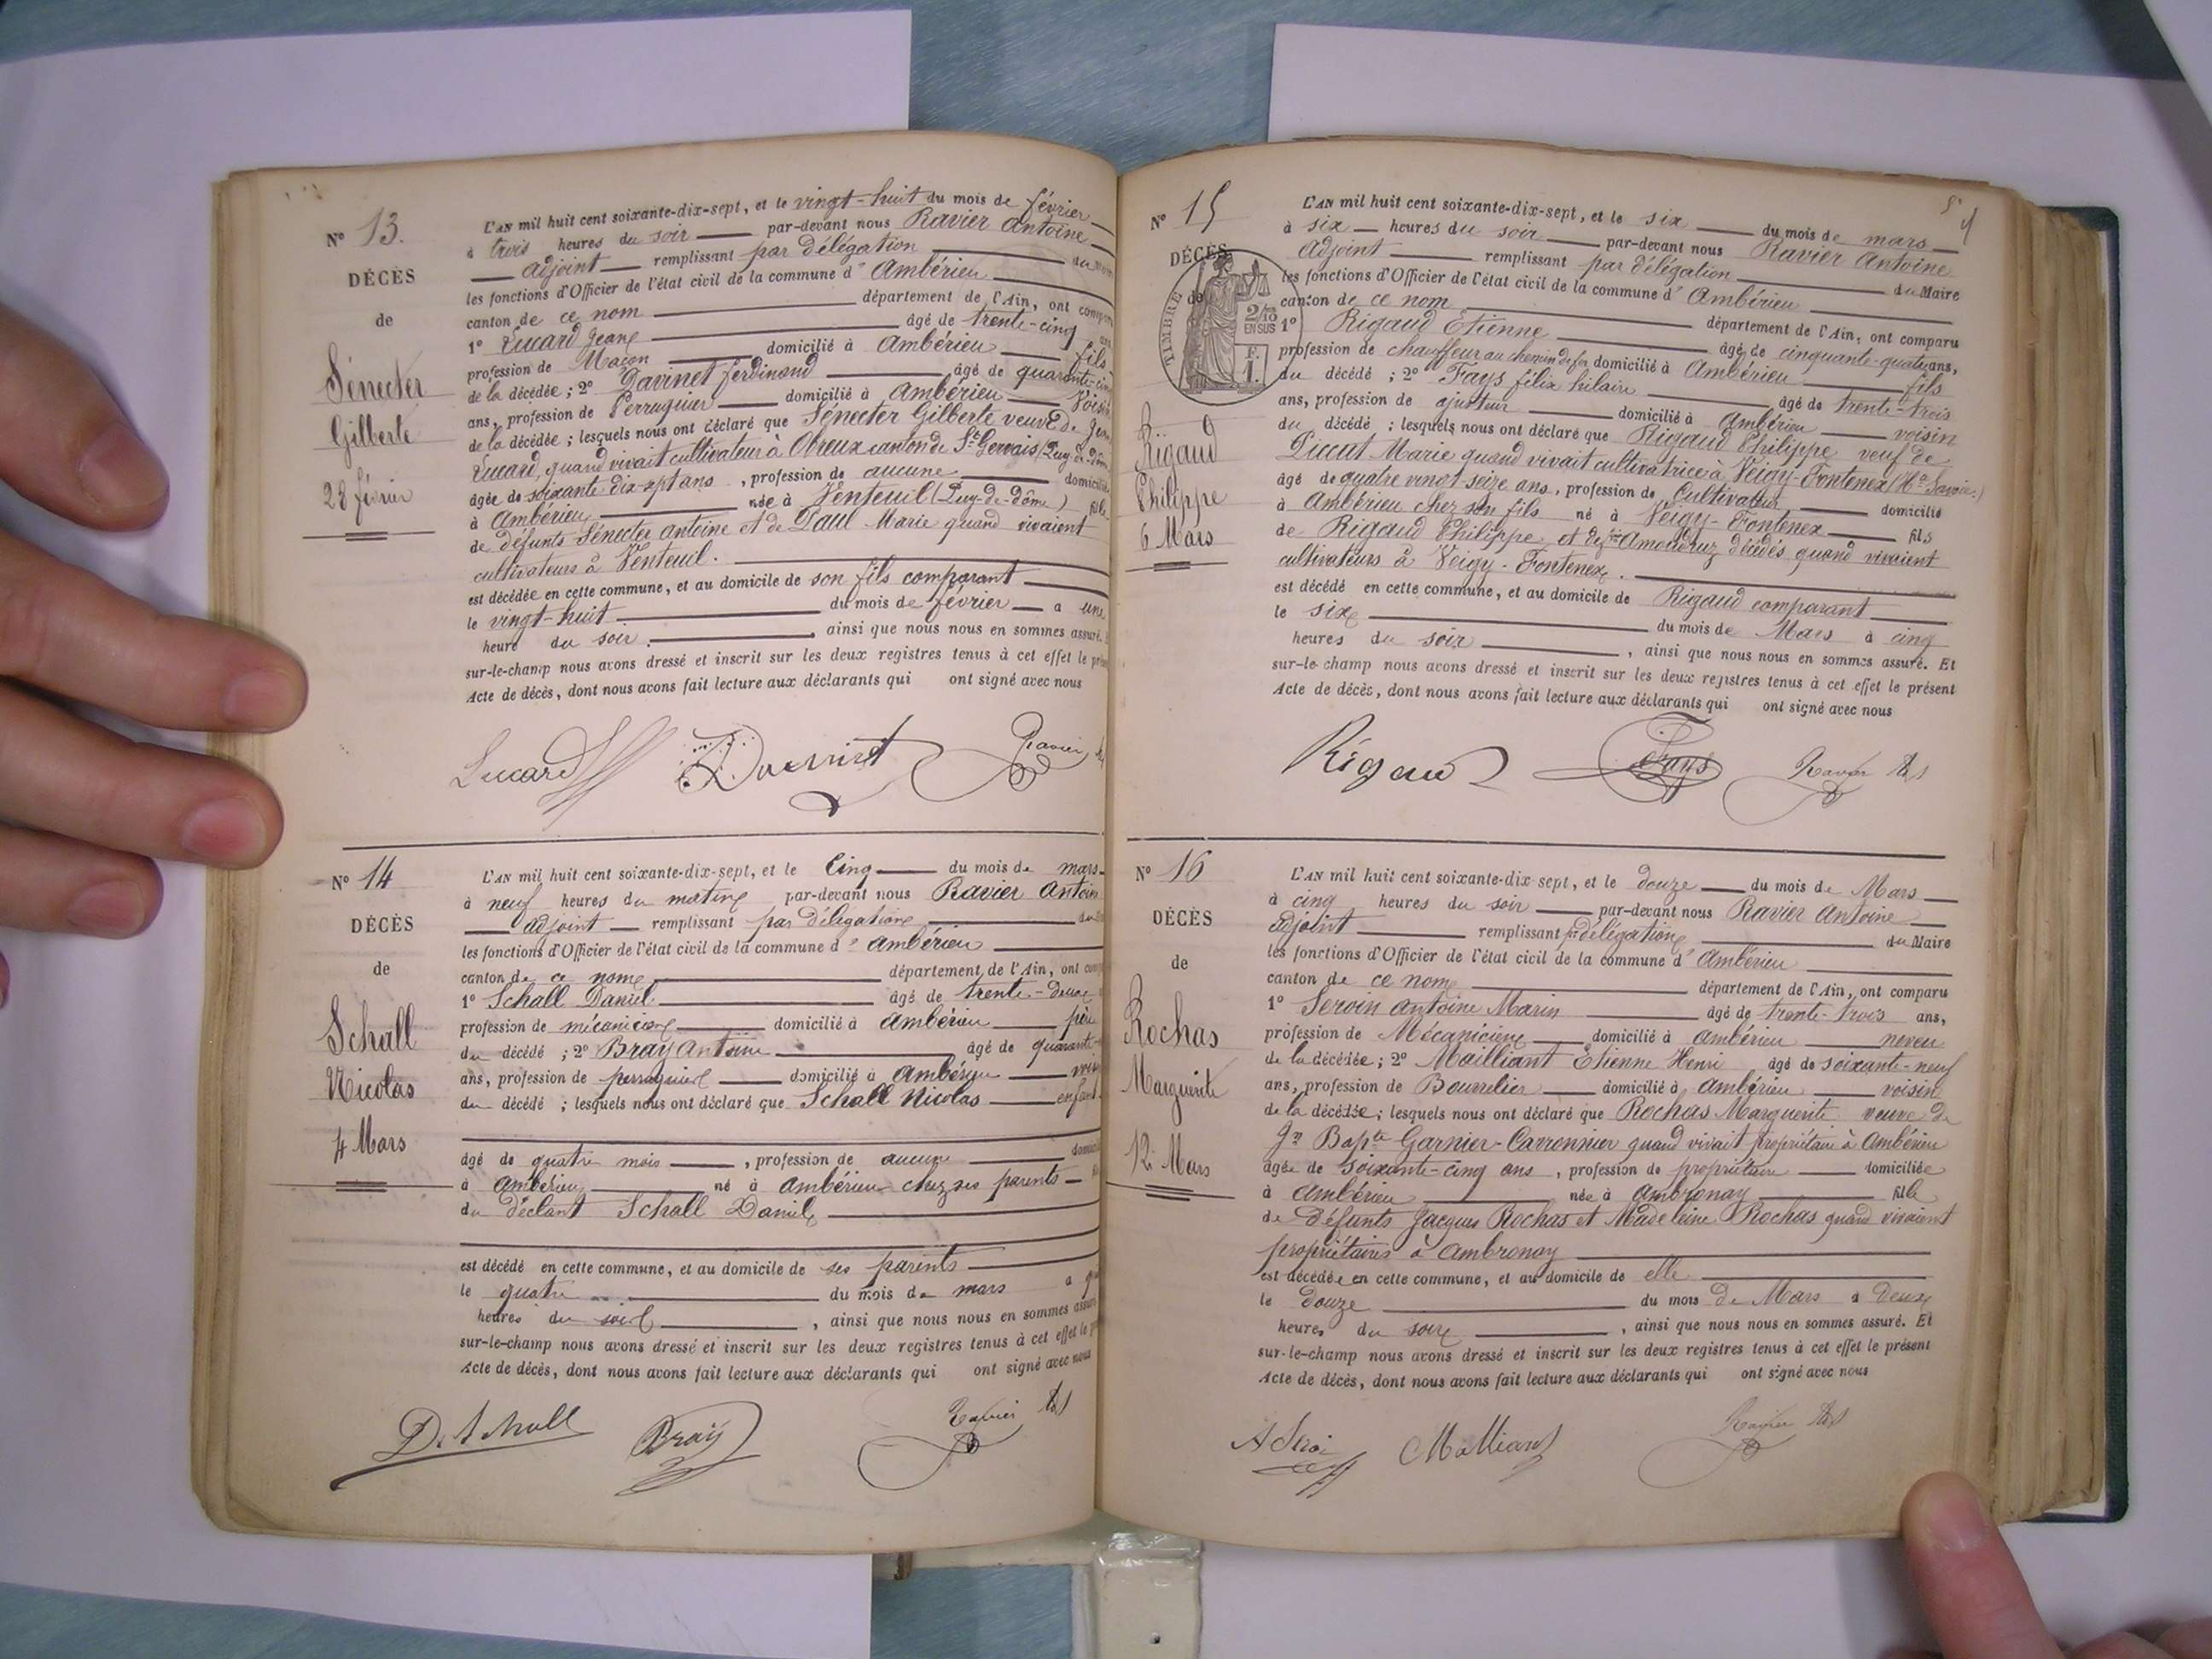 Nº 13.
DÉCÈS
de
Sénecter
Gilberte
28 février
L'AN mil huit cent soixante-dix-sept, et le vingt-huit du mois de février
à trois heures du soir par-devant nous Ravier Antoine
adjoint remplissant par délégation du
les fonctions d'Officier de l'état civil de la commune d' Ambérieu
canton de ce nom département de l'Ain, ont
1º Lucard Jean âgé de trente-cinq
profession de Maçon domicilié à Ambérieu fils
de la décédée ; 2º Davinet ferdinand âgé de quarante-cinq
ans, profession de Perruquier domicilié à Ambérieu Voisin
de la décédée ; lesquels nous ont déclaré que Sénecter Gilberte veuve de
Lucard, quand vivait cultivateur à canton de St Gervais (Puy-de-Dôme
âgée de soixante-dix-sept ans, profession de aucune domiciliée
à Ambérieu née à Venteuil (Puy-de-Dôme) fille
de défunts Sénecter Antoine et de Paul Marie quand vivaient
cultivateurs à Venteuil.
est décédée en cette commune, et au domicile de son fils comparant
le vingt-huit du mois de février a une
heure du soir , ainsi que nous nous en sommes assuré.
sur-le-champ nous avons dressé et inscrit sur les deux registres tenus à cet effet le
Acte de décès, dont nous avons fait lecture aux déclarants qui ont signé avec nous
Lucard Davinet Ravier
Nº 14
DÉCÈS
de
Schall
Nicolas
4 Mars
L'AN mil huit cent soixante-dix-sept, et le Cinq du mois de mars
à neuf heures du matin par-devant nous Ravier Antoin
adjoint remplissant par délégation du
les fonctions d'Officier de l'état civil de la commune d' Ambérieu
canton de ce nom département de l'Ain, ont
1º Schall Daniel âgé de trente-deux
profession de mécanicien domicilié à Ambérieu père
du décédé ; 2º Bray Antoine âgé de quarante
ans, profession de perruquier domicilié à Ambérieu
du décédé ; lesquels nous ont déclaré que Schall Nicolas enfant
âgé de quatre mois , profession de aucune
à Ambérieu né à Ambérieu chez ses parents
du déclant Schall Daniel
est décédé en cette commune, et au domicile de ses parents
le quatre du mois de mars a
heures du soir , ainsi que nous nous en sommes assuré
sur-le-champ nous avons dressé et inscrit sur les deux registres tenus à cet effet le
Acte de décès, dont nous avons fait lecture aux déclarants qui ont signé avec nous
D. Schall Bray Ravier
Nº 15
DÉCÈS
de
TIMBRE
2/10
EN SUS
F.
1.
Rigaud
Philippe
6 Mars
L'AN mil huit cent soixante-dix-sept, et le six du mois de mars
à six heures du soir par-devant nous Ravier Antoine
adjoint remplissant par délégation du Maire
les fonctions d'Officier de l'état civil de la commune d' Ambérieu
canton de ce nom département de l'Ain, ont comparu
1º Rigaud Etienne âgé de cinquante-quatre ans,
profession de chauffeur au chemin de fer domicilié à Ambérieu fils
du décédé ; 2º Fays félix hilaire âgé de trente-trois
ans, profession de ajusteur domicilié à Ambérieu voisin
du décédé ; lesquels nous ont déclaré que Rigaud Philippe veuf de
Marie quand vivait cultivatrice à Veigy-Fontenex (Hte Savoie.)
âgé de quatre vingt-seize ans, profession de Cultivateur domicilié
à Ambérieu chez son fils né à Veigy-Fontenex fils
de Rigaud Philippe et de Amoudruz décédés quand vivaient
cultivateurs à Veigy-Fontenex.
est décédé en cette commune, et au domicile de Rigaud comparant
le six du mois de Mars à cinq
heures du soir , ainsi que nous nous en sommes assuré. Et
sur-le-champ nous avons dressé et inscrit sur les deux registres tenus à cet effet le présent
Acte de décès, dont nous avons fait lecture aux déclarants qui ont signé avec nous
Rigaud Fays Ravier
Nº 16
DÉCÈS
de
Rochas
Marguerite
12 Mars
L'AN mil huit cent soixante-dix-sept, et le douze du mois de Mars
à cinq heures du soir par-devant nous Ravier Antoine
adjoint remplissant pr délégation du Maire
les fonctions d'Officier de l'état civil de la commune d' Ambérieu
canton de ce nom département de l'Ain, ont comparu
1º Seroin Antoine Marin âgé de trente-trois ans,
profession de Mécanicien domicilié à Ambérieu neveu
de la décédée ; 2º Mailliant Etienne Henri âgé de soixante-neuf
ans, profession de Bourrelier domicilié à Ambérieu voisin
de la décédée ; lesquels nous ont déclaré que Rochas Marguerite veuve de
Jn Bapte Garnier-Carronnier quand vivait propriétaire à Ambérieu
âgée de soixante-cinq ans , profession de propriétaire domiciliée
à Ambérieu née à Ambronay fille
de défunts Jacques Rochas et Madeleine Rochas quand vivaient
propriétaires à Ambronay
est décédée en cette commune, et au domicile de elle
le douze du mois de Mars à deux
heures du soir , ainsi que nous nous en sommes assuré. Et
sur-le-champ nous avons dressé et inscrit sur les deux registres tenus à cet effet le présent
Acte de décès, dont nous avons fait lecture aux déclarants qui ont signé avec nous
Ravier